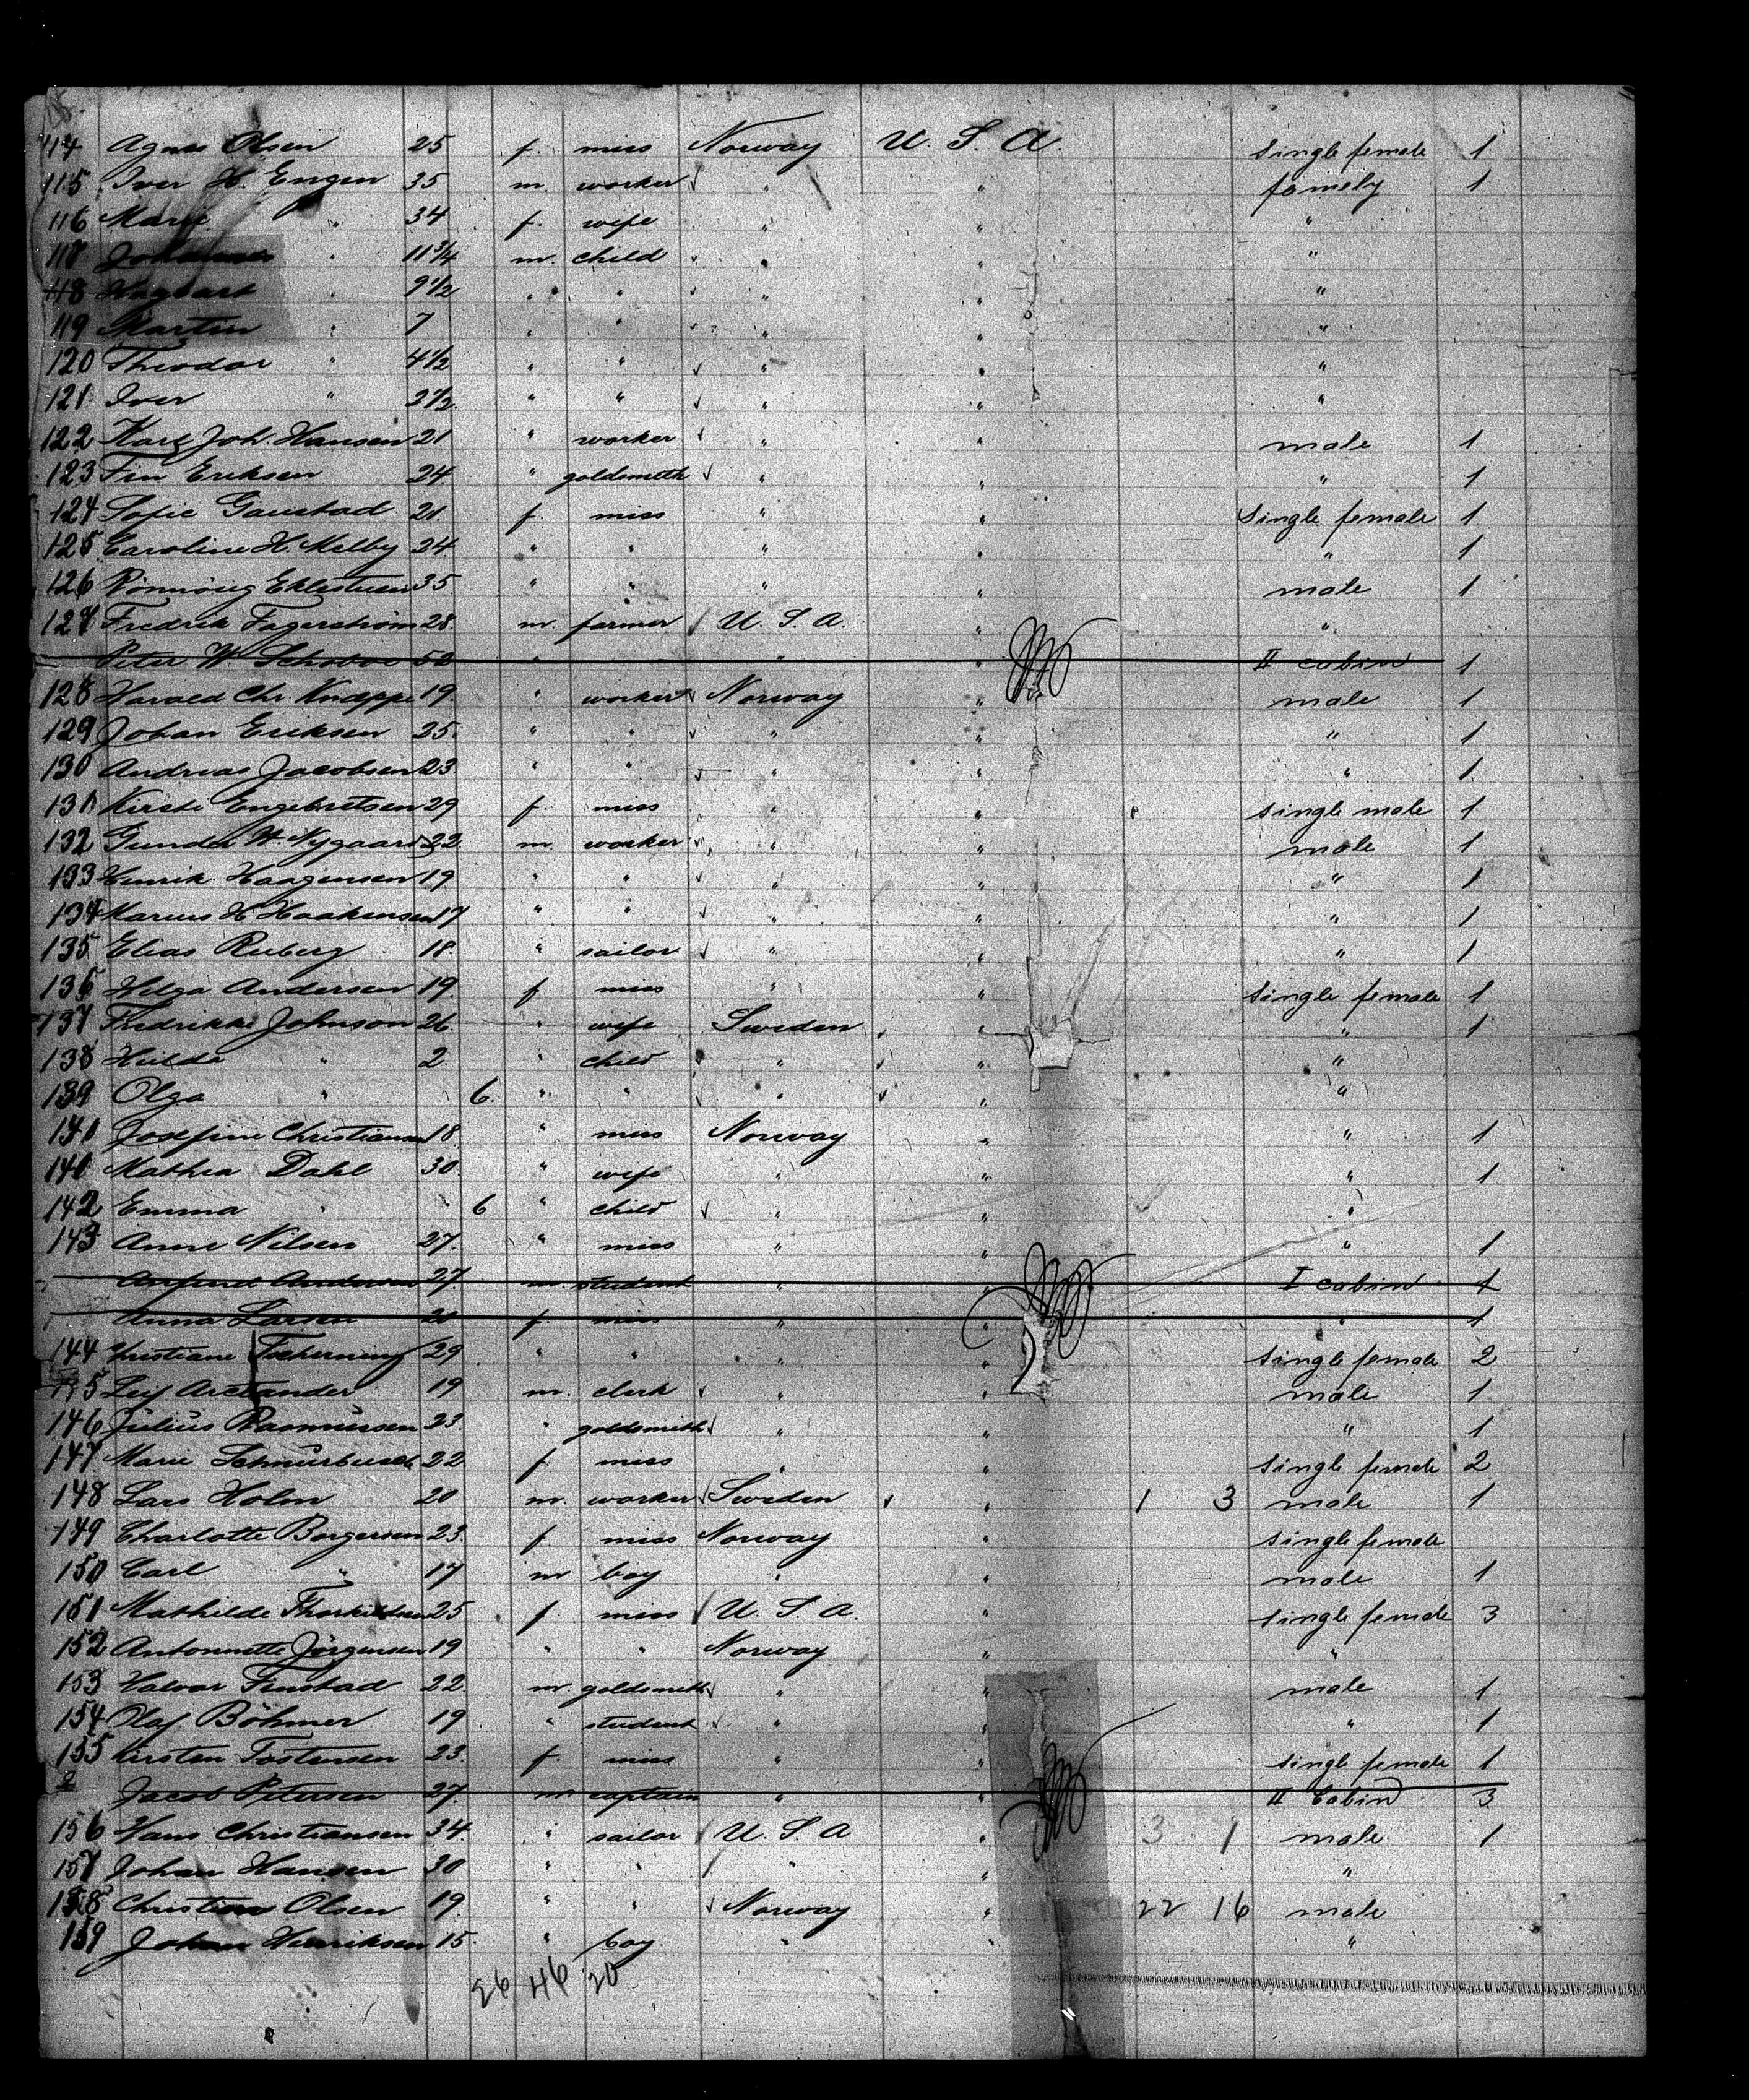 114 Agnes Olsen 25 f. miss Norway U. S. A. single female 1
115 Iver H. Engen 35 m. worker " " famely 1
116 Marie " 34 f. wife " " "
118 Johannes " 11 3/4 m. child " " "
118 " 9 1/2 " " " " "
119 Martin " 7 " " " " "
120 Theodor " 4 1/2 " " " " "
121 Iver " 2 1/2 " " " " "
122 Karl Joh. Hansen 21 " worker " " male 1
123 Fin Eriksen 24 " goldsmith " " " 1
124 Sofie Gaustad 21 f. miss " " single female 1
125 Caroline H. Melby 24 " " " " " 1
126 Rönnöug Eklestuen 35 " " " " male 1
127 Fredrik Fagerström 28 m. farmer U. S. A. " "
Peter W. 52 " " " II cabin 1
128 Harald Chr. Knoppe 19 " worker Norway " male 1
129 Johan Eriksen 25 " " " " " 1
130 Andreas Jacobsen 23 " " " " " 1
131 Kirsti Engebretsen 29 f. miss " " single male 1
132 Gunder W. Nygaard 22 m. worker " " male 1
133 Henrik Haagensen 19 " " " " " 1
134 Marius H Haakensen 17 " " " " " 1
135 Elias Ruberg 18 " sailor " " " 1
136 Helga Andersen 19 f miss " " single female 1
137 Fredrikke Johnson 26 " wife Sweden " " 1
138 Hulda " 2 " child " " "
139 Olga " 6 " " " " "
141 Josefine Christiansen 18 " miss Norway " " 1
140 Mathea Dahl 30 " wife " " " 1
142 Emma " 6 " child " " "
143 Anne Nilsen 27 " miss " " " 1
Andersen 27 m. student " " I cabin 1
Anna Larsen 20 f. miss " " " 1
144 Kristiane Tscherning 29 " " " " single female 2
145 Leif Arctander 19 m. clerk " " male 1
146 Julius Rasmussen 23 " goldsmith " " " 1
147 Marie Schnurbusch 22 f miss " " single female 2
148 Lars Holm 20 m. worker Sweden " 1 3 male 1
149 Charlotte Borgersen 23 f. miss Norway " single female
150 Carl " 17 m boy " " male 1
151 Mathilde Thorkildsen 25 f. miss U. S. A. " single female 3
152 Antonnette Jörgensen 19 " " Norway " "
153 Halvor Finstad 22 m. goldsmith " " male 1
154 Olaf Böhmer 19 " student " " " 1
155 Kirsten Tostensen 23 f. miss " " single female 1
Jacob Petersen 27 m captain " " II Cabin 3
156 Hans Christiansen 34 " sailor U. S. A " 3 1 male 1
157 Johan Hansen 30 " " " " "
158 Christian Olsen 19 " " Norway " 22 16 male
159 Johan Henriksen 15 " boy " " "
26 46 20